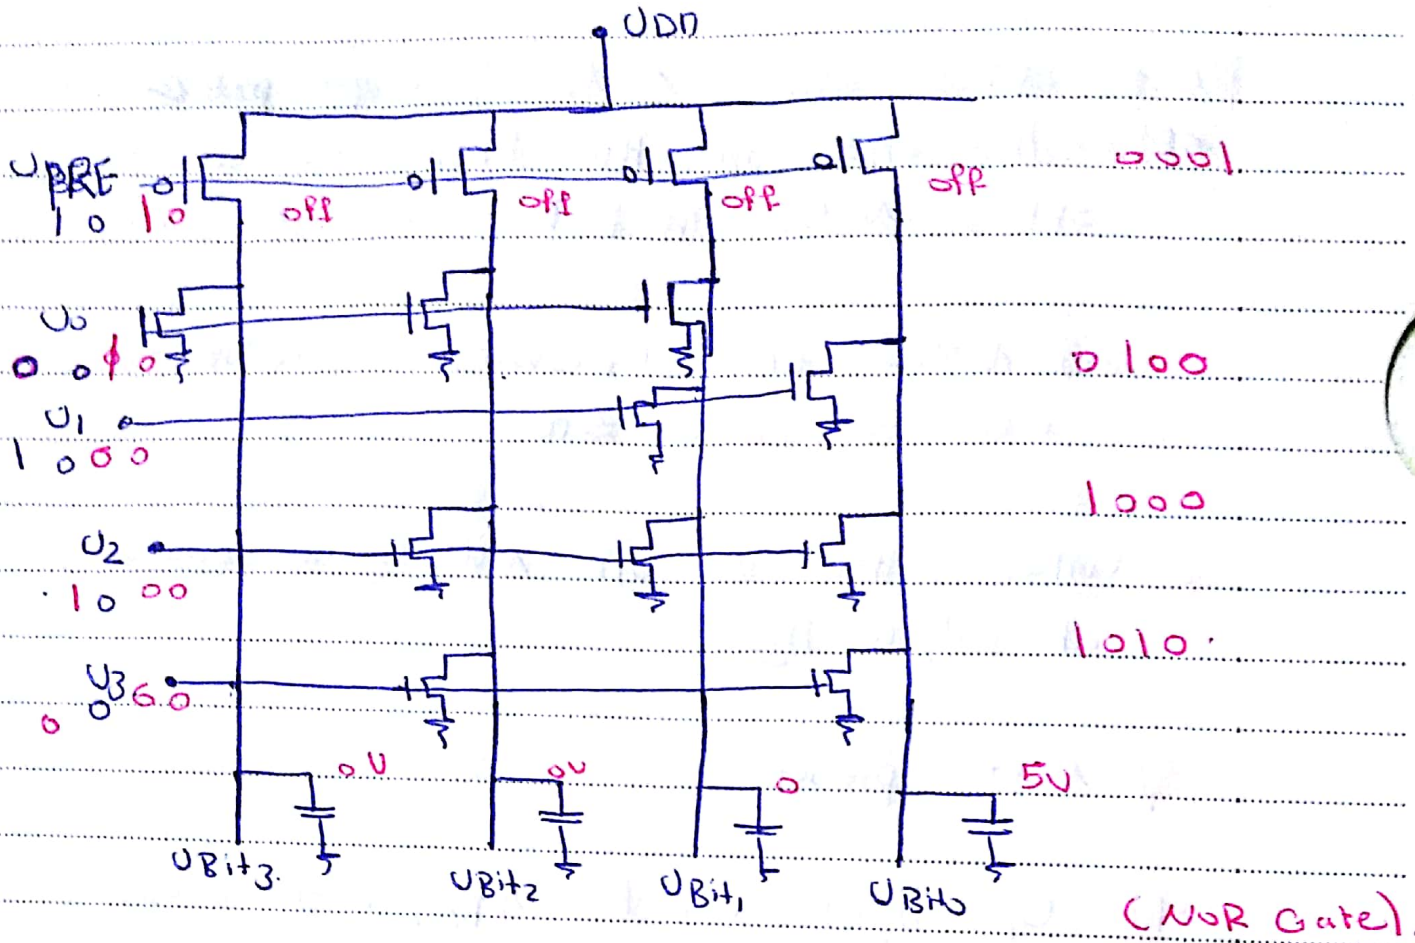 VDD
VPRE
1 0 1 0
off off off off
0001
V0
0 0 0
0100
V1
1 0 0 0
1000
V2
1 0 0 0
1010
V3
0 0 0 0
0V 0V 0 5V
VBit3 VBit2 VBit1 VBit0
(NOR Gate)